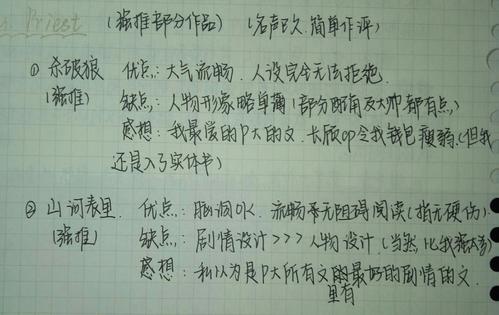 1. Priest (强推部分作品) (名声已久.简单作评)
① 杀破狼 优点:大气流畅.人设完全无法拒绝.
(强推) 缺点:人物形象略单薄(部分配角及大帅都有点)
感想:我最爱的P大的文.长版op令我钱包瘦弱.(但我
还是入了实体书)
② 山河表里. 优点:脑洞OK.流畅本无阻碍阅读(指无硬伤)
(强推) 缺点:剧情设计>>>人物设计(当然比我强太多)
感想:私以为是P大所有文里有最好的剧情的文.